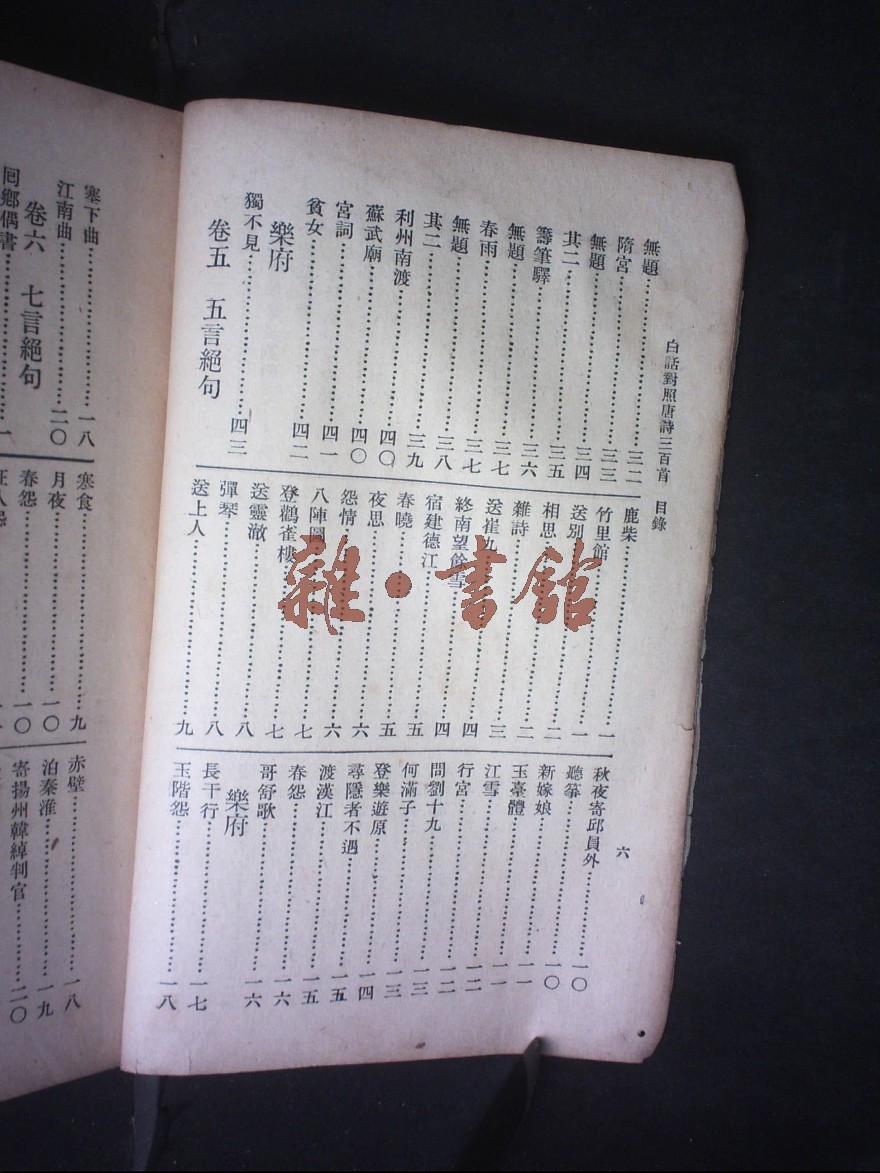 白話對照唐詩三百首 目錄
六
無題……三二
隋宮……三三
無題……三四
其二……三五
籌筆驛……三六
無題……三七
春雨……三七
無題……三八
其二……三九
利州南渡……四〇
蘇武廟……四〇
宮詞……四一
貧女……四二
樂府
獨不見……四三
卷五 五言絕句
鹿柴……一
竹里館……一
送別……二
相思……二
雜詩……三
送崔九……四
終南望餘雪……四
宿建德江……五
春曉……五
夜思……六
怨情……六
八陣圖……七
登鸛雀樓……七
送靈澈……八
彈琴……八
送上人……九
秋夜寄邱員外……一〇
聽箏……一〇
新嫁娘……一一
玉臺體……一一
江雪……一二
行宮……一二
問劉十九……一三
何滿子……一三
登樂遊原……一四
尋隱者不遇……一五
渡漢江……一五
春怨……一六
哥舒歌……一六
樂府
長干行……一七
玉階怨……一八
塞下曲……一八
江南曲……二〇
卷六 七言絕句
囘鄉偶書……一
寒食……九
月夜……一〇
春怨……一〇
赤壁……一八
泊秦淮……一九
寄揚州韓綽判官……二〇
雜·書館